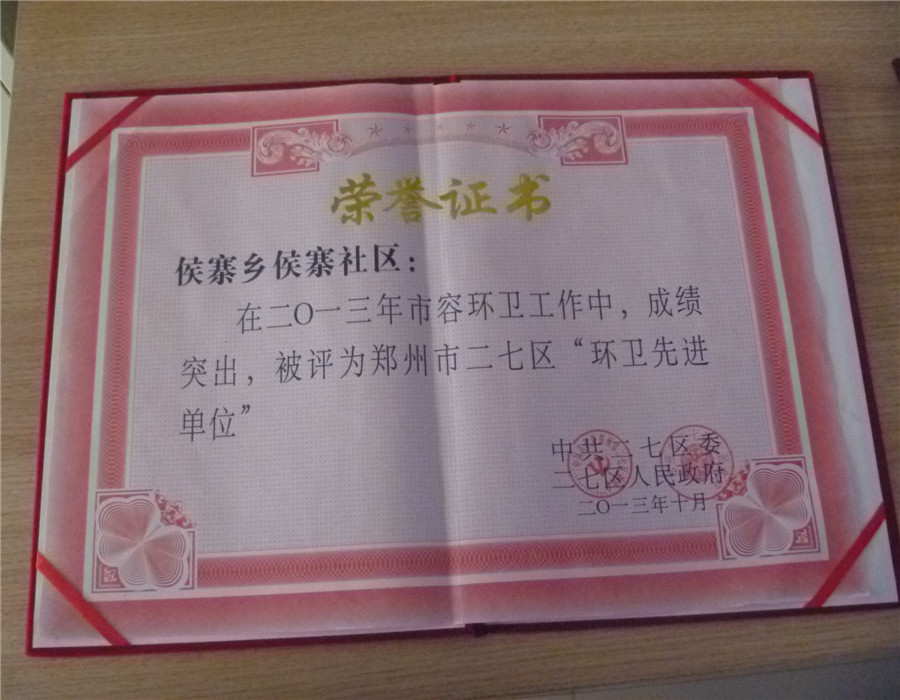 荣誉证书
侯寨乡侯寨社区：
在二〇一三年市容环卫工作中，成绩
突出，被评为郑州市二七区“环卫先进
单位”
中共二七区委
二七区人民政府
二〇一三年十月